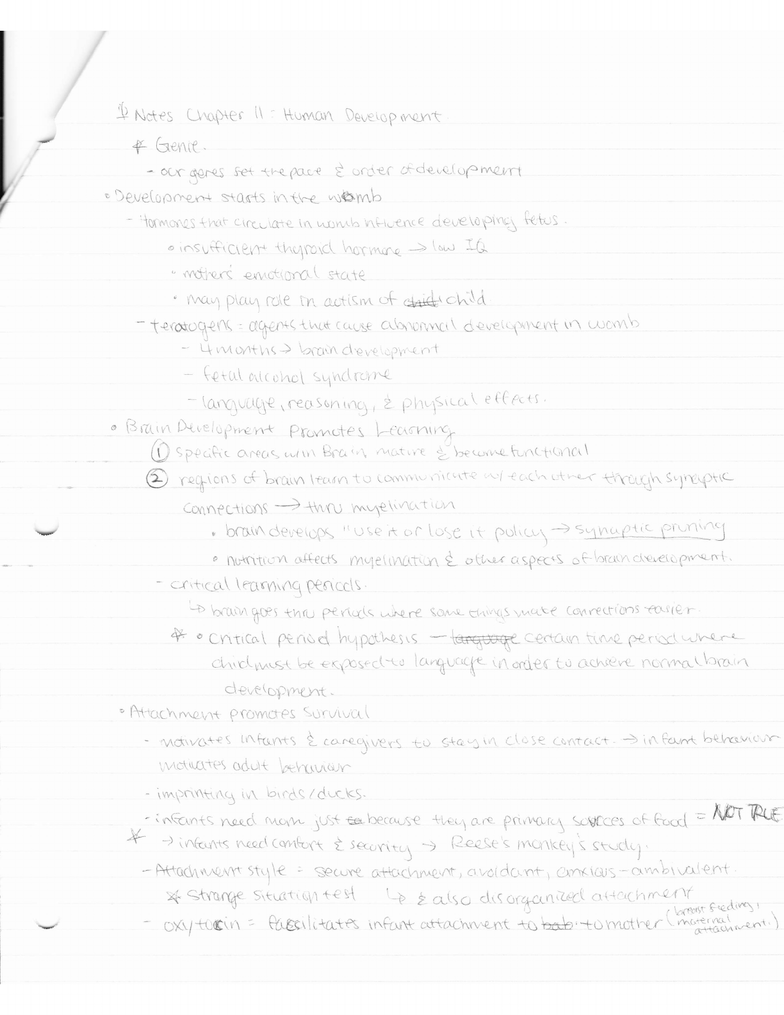 Notes Chapter 11: Human Development
* Genie.
- our genes set the pace & order of development
• Development starts in the womb
- Hormones that circulate in womb influence developing fetus.
• insufficient thyroid hormone → low IQ
• mothers' emotional state
• may play role in autism of child child
- teratogens = agents that cause abnormal development in womb
- 4 months → brain development
- fetal alcohol syndrome
- language, reasoning, & physical effects.
• Brain Development Promotes Learning
① specific areas w/in Brain mature & become functional
② regions of brain learn to communicate w/ each other through synaptic
connections → thru myelination
• brain develops "use it or lose it policy → synaptic pruning
• nutrition affects myelination & other aspects of brain development.
- critical learning periods.
↳ brain goes thru periods where some things make connections easier.
* • critical period hypothesis - language certain time period where
child must be exposed to language in order to achieve normal brain
development.
• Attachment promotes Survival
- motivates infants & caregivers to stay in close contact. → infant behaviour
motivates adult behaviour
- imprinting in birds/ducks.
- infants need mom just to because they are primary sources of food = NOT TRUE
* → infants need comfort & security → Reese's monkey's study.
- Attachment style = secure attachment, avoidant, anxious-ambivalent.
* Strange situation test ↳ & also disorganized attachment
- oxytocin = faccilitates infant attachment to bab to mother (breast feeding, maternal attachment.)